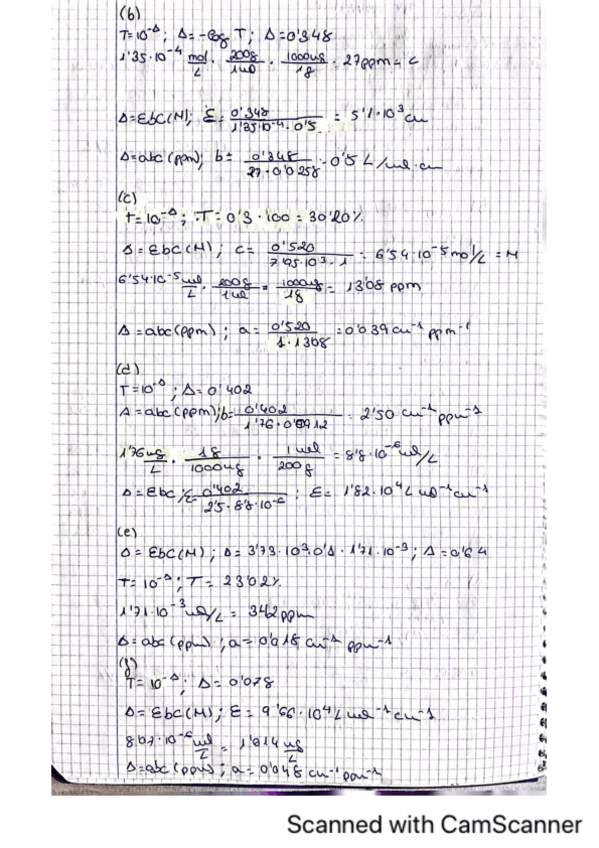 (b)
T=10^-A ; A=-log T ; A=0'348
1'35·10^-4 mol/L · 200g/1mol · 1000mg/1g = 27ppm = C
A=Ebc(M); E= 0'348/1'35·10^-4·0'5 = 5'1·10^3 cm
A=abc(ppm); b= 0'348/27·0'0258 = 0'5 L/mol·cm
(c)
T=10^-A ; T=0'3·100 = 30'20%
A=Ebc(M); C= 0'520/7'95·10^3·1 = 6'54·10^-5 mol/L = M
6'54·10^-5 mol/L · 200g/1mol · 1000mg/1g = 13'08 ppm
A=abc(ppm); a= 0'520/1·1308 = 0'039 cm^-1 ppm^-1
(d)
T=10^-A ; A=0'402
A=abc(ppm); b= 0'402/1'76·0'0912 = 2'50 cm^-1 ppm^-1
1'76 mg/L · 1g/1000mg · 1mol/200g = 8'8·10^-6 mol/L
A=Ebc; E= 0'402/2'5·8'8·10^-6 ; E= 1'82·10^4 L mol^-1 cm^-1
(e)
A=Ebc(M); A= 3'73·10^3·0'1·1'71·10^-3 ; A=0'64
T=10^-A ; T=23'02%
1'71·10^-3 mol/L = 342ppm
A=abc(ppm); a=0'018 cm^-1 ppm^-1
(f)
T=10^-A ; A=0'078
A=Ebc(M); E=9'66·10^4 L mol^-1 cm^-1
8'07·10^-6 mol/L = 1'614 mg/L
A=abc(ppm); a=0'048 cm^-1 ppm^-1
Scanned with CamScanner